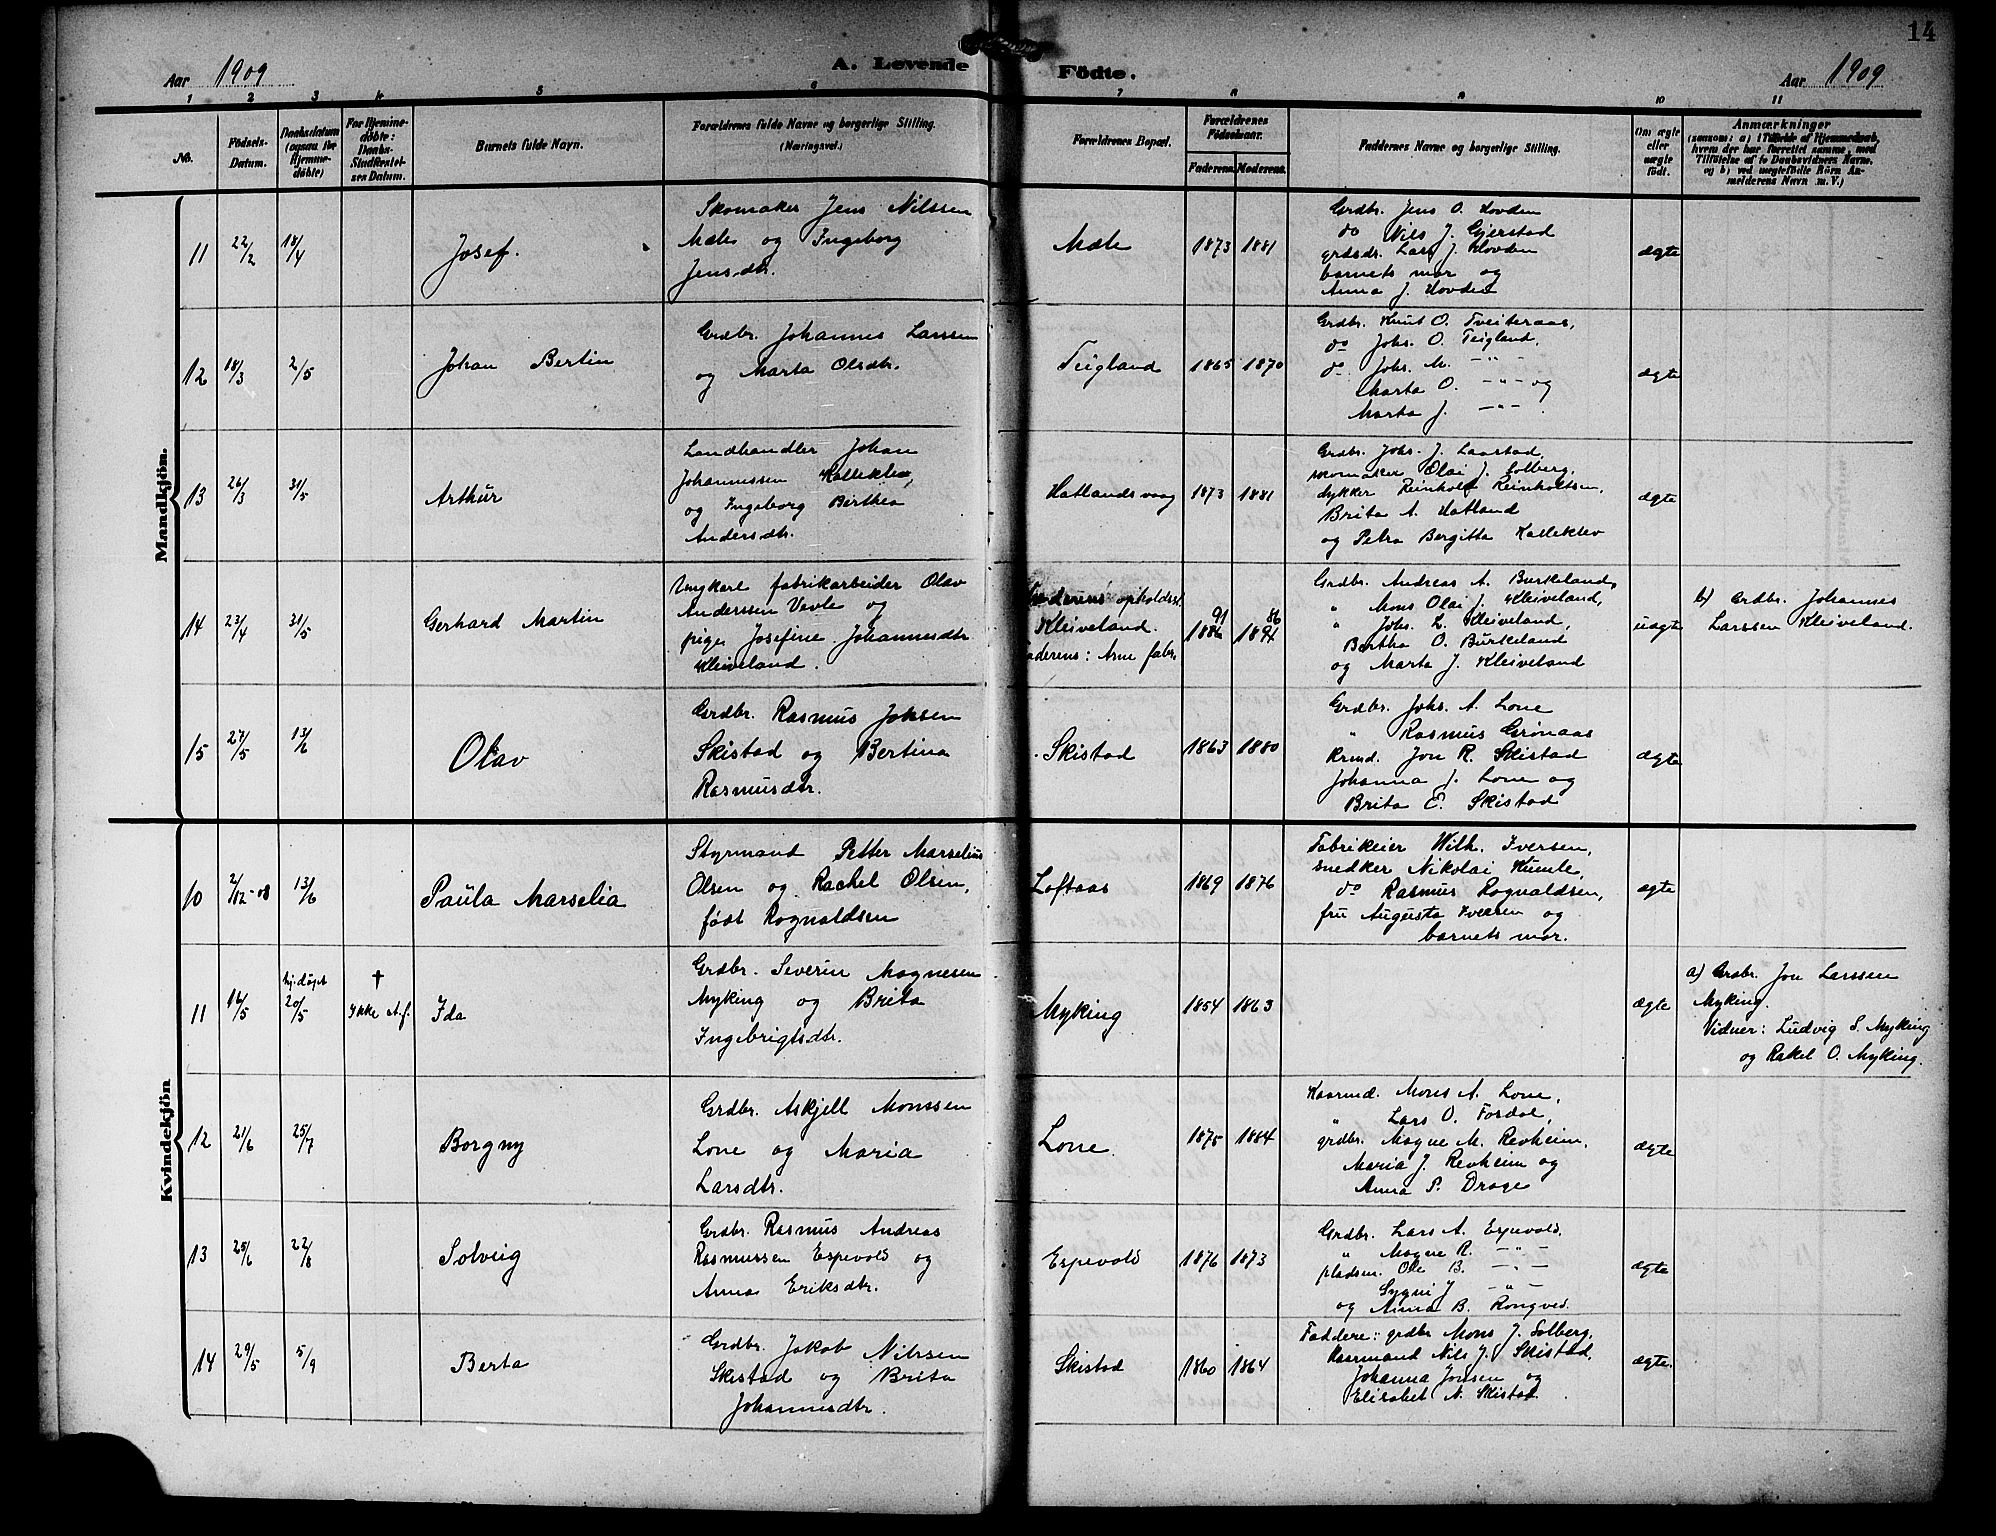 14
Aar 1909
A. Levende Födte.
Aar 1909
1 2 3 4 5 6 7 8 9 10 11
No.
Födsels-
Datum.
Daabsdatum
(ogsaa for
Hjemme-
döbte)
For Hjemme-
döbte:
Daabs-
Stadfæstel-
ses Datum.
Barnets fulde Navn.
Forældrenes fulde Navne og borgerlige Stilling.
(Næringsvei.)
Forældrenes Bopæl.
Forældrenes
Födselsaar.
Faderens Moderens
Faddernes Navne og borgerlige Stilling.
Om ægte
eller
uægte
födt.
Anmærkninger
(saasom: a) i Tilfælde af Hjemmedaab,
hvem der har forrettet samme, med
Tilföielse af to Daabsvidners Navne,
og b) ved uægtefödte Börn An-
melderens Navn m. V.)
Mandkjön.
11 22/2 18/4 Josef.
Skomaker Jens Nilssen
Mæle og Ingeborg
Jensdtr.
Mæle 1873 1881
Grdbr. Jens O. Hovden
do Nils J. Gjerstad
grdsdr. Lars J. Hovden
barnets mor og
Anna J. Hovden
ægte
12 18/3 2/5 Johan Bertin
Grdbr. Johannes Larssen
og Marta Olsdtr.
Teigland 1865 1870
Grdbr. Knut O. Tveiteraas,
do Johs. O. Teigland,
do. Johs. M. -"-
Marta O. -"- og
Marta J. -"-
ægte
13 26/3 31/5 Arthur
Landhandler Johan
Johannessen Kalleklev,
og Ingeborg Birthea
Andersdtr.
Hatlandsvaag 1873 1881
Grdbr. Johs. J. Laastad,
skomaker Olai J. Solberg,
dykker Reinholt Reinholtsen,
Brita A. Hatland
og Petra Bergitta Kalleklev
ægte
14 23/4 31/5 Gerhard Martin
Ungkarl fabrikarbeider Olav
Anderssen Vevle og
pige Josefine Johannesdtr
Kleiveland.
Moderens opholdsst.
Kleiveland.
Faderens: Arne fabr.
91 86
1886 1891
Grdbr. Andreas A. Burkeland,
" Mons Olai J. Kleiveland,
" Johs. L. Kleiveland,
Bertha O. Burkeland
og Marta J. Kleiveland
uægte
b) Grdbr. Johannes
Larssen Kleiveland.
15 27/5 13/6 Olav
Grdbr. Rasmus Johsen
Skistad og Bertina
Rasmusdtr.
Skistad 1863 1880
Grdbr. Johs. A. Lone
" Rasmus Grønaas
Krmd. Jon R. Skistad
Johanna J. Lone og
Brita E. Skistad
ægte
Kvindekjön
10 2/12-08 13/6 Paula Marselia
Styrmand Petter Marselius
Olsen og Rachel Olsen,
født Rognaldsen
Loftaas 1869 1876
Fabrikeier Wilh. Iversen,
snedker Nikolai Kumle,
do Rasmus Rognaldsen,
fru Augusta Iversen og
barnets mor.
ægte
11 16/5 hj.døpt 20/5 † Ikke st.f. Ida
Grdbr. Severin Magnesen
Myking og Brita
Ingebrigtsdtr.
Myking 1854 1863
ægte
a) Grdbr. Jon Larssen
Myking.
Vidner: Ludvig S. Myking
og Rakel O. Myking.
12 21/6 25/7 Borgny
Grdbr. Askjell Monssen
Lone og Maria
Larsdtr.
Lone 1875 1884
Kaarmd. Mons A. Lone,
" Lars O. Fordal,
grdbr. Magne M. Revheim,
Maria J. Revheim og
Anna P. Drage
ægte
13 25/6 22/8 Solveig
Grdbr. Rasmus Andreas
Rasmussen Espevold og
Anna Eriksdtr.
Espevold 1876 1873
Grdbr. Lars A. Espevold,
" Magne R. -"-
pladsm. Ole B. -"-
Sygni J -"-
og Anna B. Rongved.
ægte
14 29/5 5/9 Berta
Grdbr. Jakob Nilssen
Skistad og Brita
Johannesdtr.
Skistad 1860 1864
Faddere: grdbr Mons J. Solberg,
Kaarmand Nils J. Skistad,
Johanna Jonsen og
Elisabet N. Skistad
ægte.